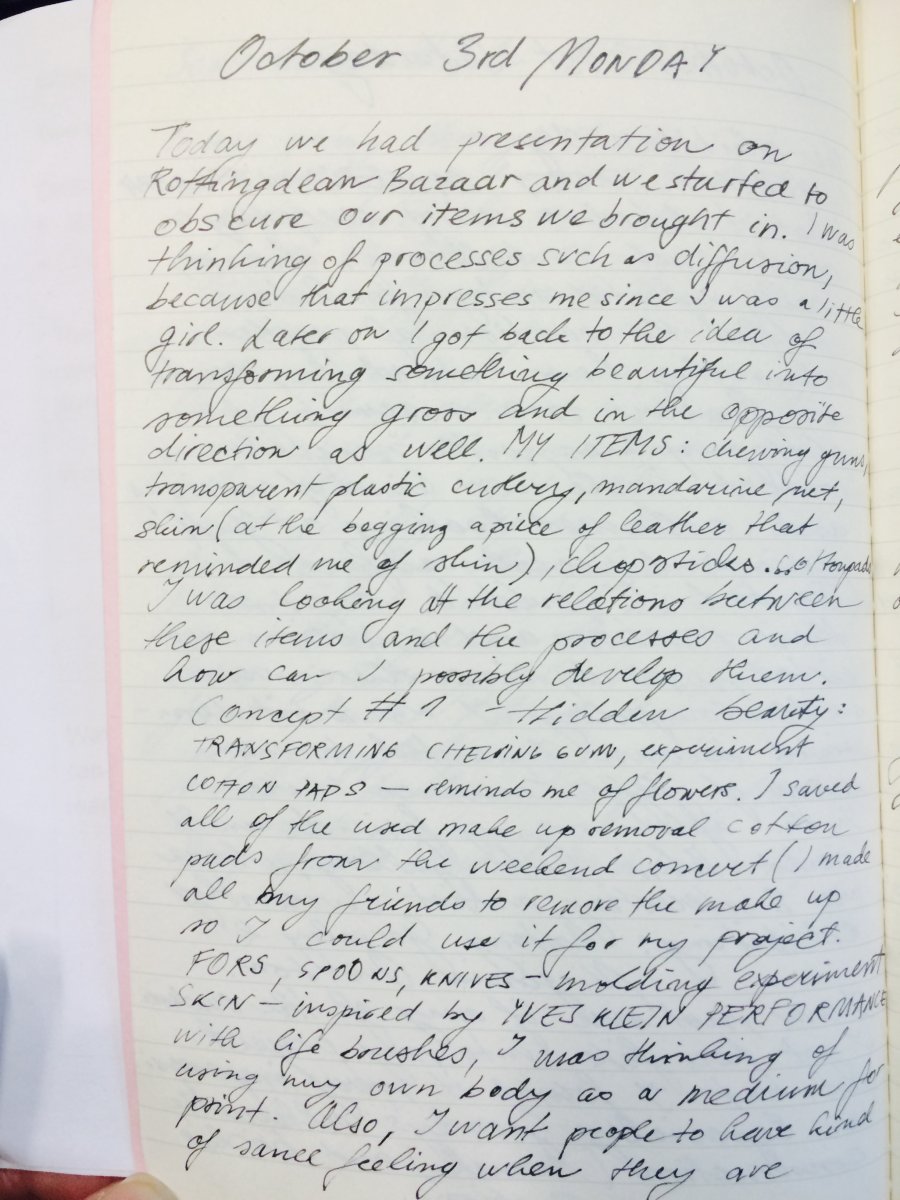 October 3rd MONDAY
Today we had presentation on
Rottingdean Bazaar and we started to
obscure our items we brought in. I was
thinking of processes such as diffusion,
because that impresses me since I was a little
girl. Later on I got back to the idea of
transforming something beautiful into
something gross and in the opposite
direction as well. MY ITEMS: chewing gum,
transparent plastic cutlery, mandarine net,
skin (at the begging a piece of leather that
reminded me of skin), chopsticks. cottonpads
I was looking at the relations between
these items and the processes and
how can I possibly develop them.
Concept # 1 - Hidden beauty:
TRANSFORMING CHEWING GUM, experiment
COTTON PADS — reminds me of flowers. I saved
all of the used make up removal cotton
pads from the weekend concert (I made
all my friends to remove the make up
so I could use it for my project.
FORS, SPOONS, KNIVES - molding experiment
SKIN - inspired by YVES KLEIN PERFORMANCE
with life brushes, I was thinking of
using my own body as a medium for
print. Also, I want people to have kind
of same feeling when they are